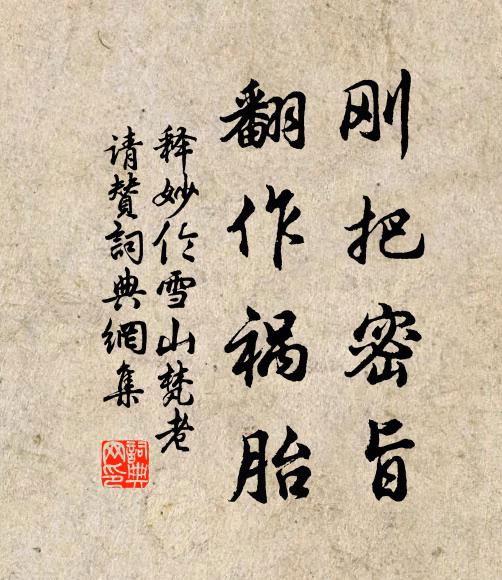 刚把密旨
翻作祸胎
释妙伦雪山梵老
请赞词典網集
詞典
网印